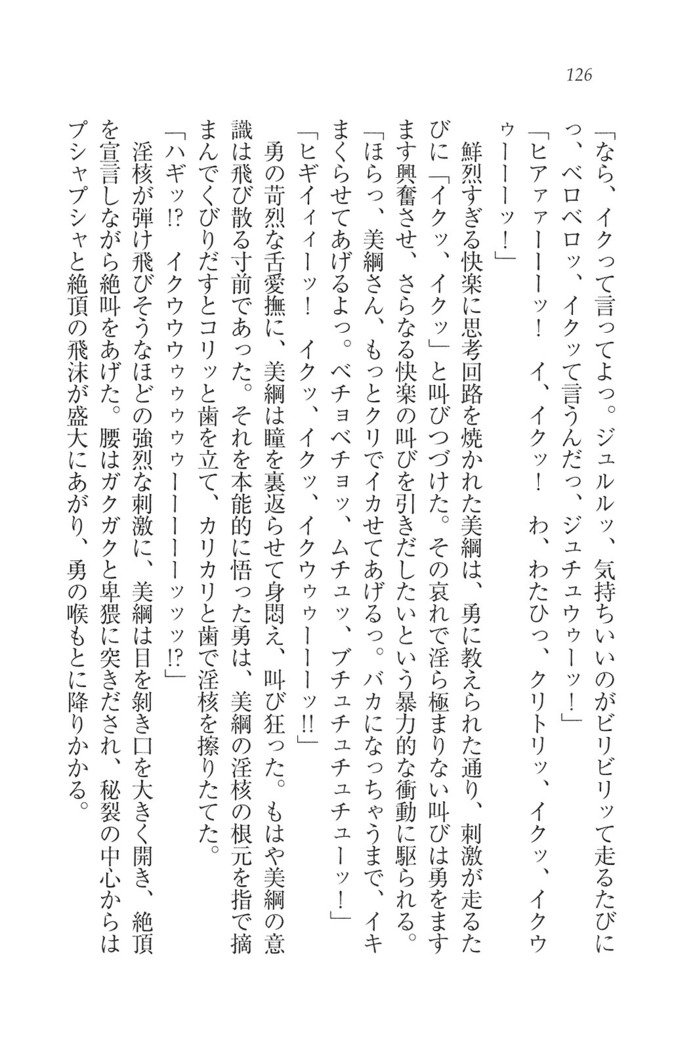 126
「なら、イクって言ってよっ。ジュルルッ、気持ちいいのがビリビリッて走るたびに
っ、ベロベロッ、イクッて言うんだっ、ジュチュウゥーッ！」
「ヒアァァーーーッ！　イ、イクッ！　わ、わたひっ、クリトリッ、イクッ、イクウ
ゥーーーッ！」
鮮烈すぎる快楽に思考回路を焼かれた美綱は、勇に教えられた通り、刺激が走るた
びに「イクッ、イクッ」と叫びつづけた。その哀れで淫ら極まりない叫びは勇をます
ます興奮させ、さらなる快楽の叫びを引きだしたいという暴力的な衝動に駆られる。
「ほらっ、美綱さん、もっとクリでイカせてあげるっ。バカになっちゃうまで、イキ
まくらせてあげるよっ。ベチョベチョッ、ムチュッ、ブチュチュチュチューッ！」
「ヒギイィィーッ！　イクッ、イクッ、イクウゥゥーーーッ!!」
勇の苛烈な舌愛撫に、美綱は瞳を裏返らせて身悶え、叫び狂った。もはや美綱の意
識は飛び散る寸前であった。それを本能的に悟った勇は、美綱の淫核の根元を指で摘
まんでくびりだすとコリッと歯を立て、カリカリと歯で淫核を擦りたてた。
「ハギッ!?　イクウウウゥゥゥゥゥーーーーーッッッ!?」
淫核が弾け飛びそうなほどの強烈な刺激に、美綱は目を剝き口を大きく開き、絶頂
を宣言しながら絶叫をあげた。腰はガクガクと卑猥に突きだされ、秘裂の中心からは
プシャプシャと絶頂の飛沫が盛大にあがり、勇の喉もとに降りかかる。